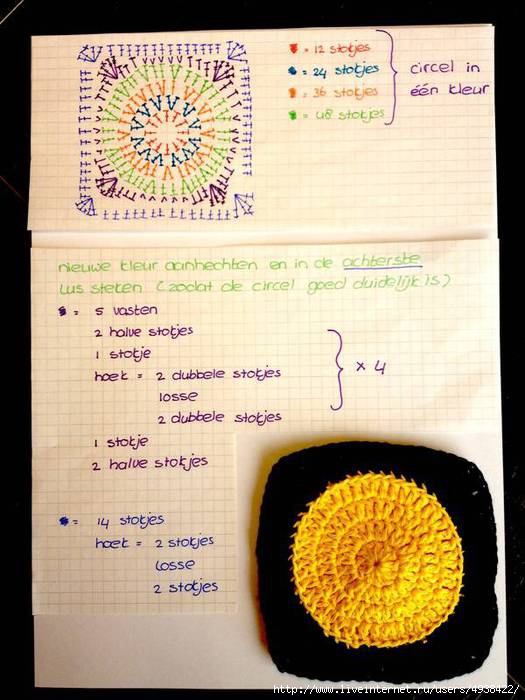 = 12 stokjes
= 24 stokjes
= 36 stokjes
= 48 stokjes
circel in
één kleur
nieuwe kleur aanhechten en in de achterste
lus steken (zodat de circel goed duidelijk is)
= 5 vasten
2 halve stokjes
1 stokje
hoek = 2 dubbele stokjes
losse
2 dubbele stokjes
x 4
1 stokje
2 halve stokjes
= 14 stokjes
hoek = 2 stokjes
losse
2 stokjes
http://www.liveinternet.ru/users/4938422/